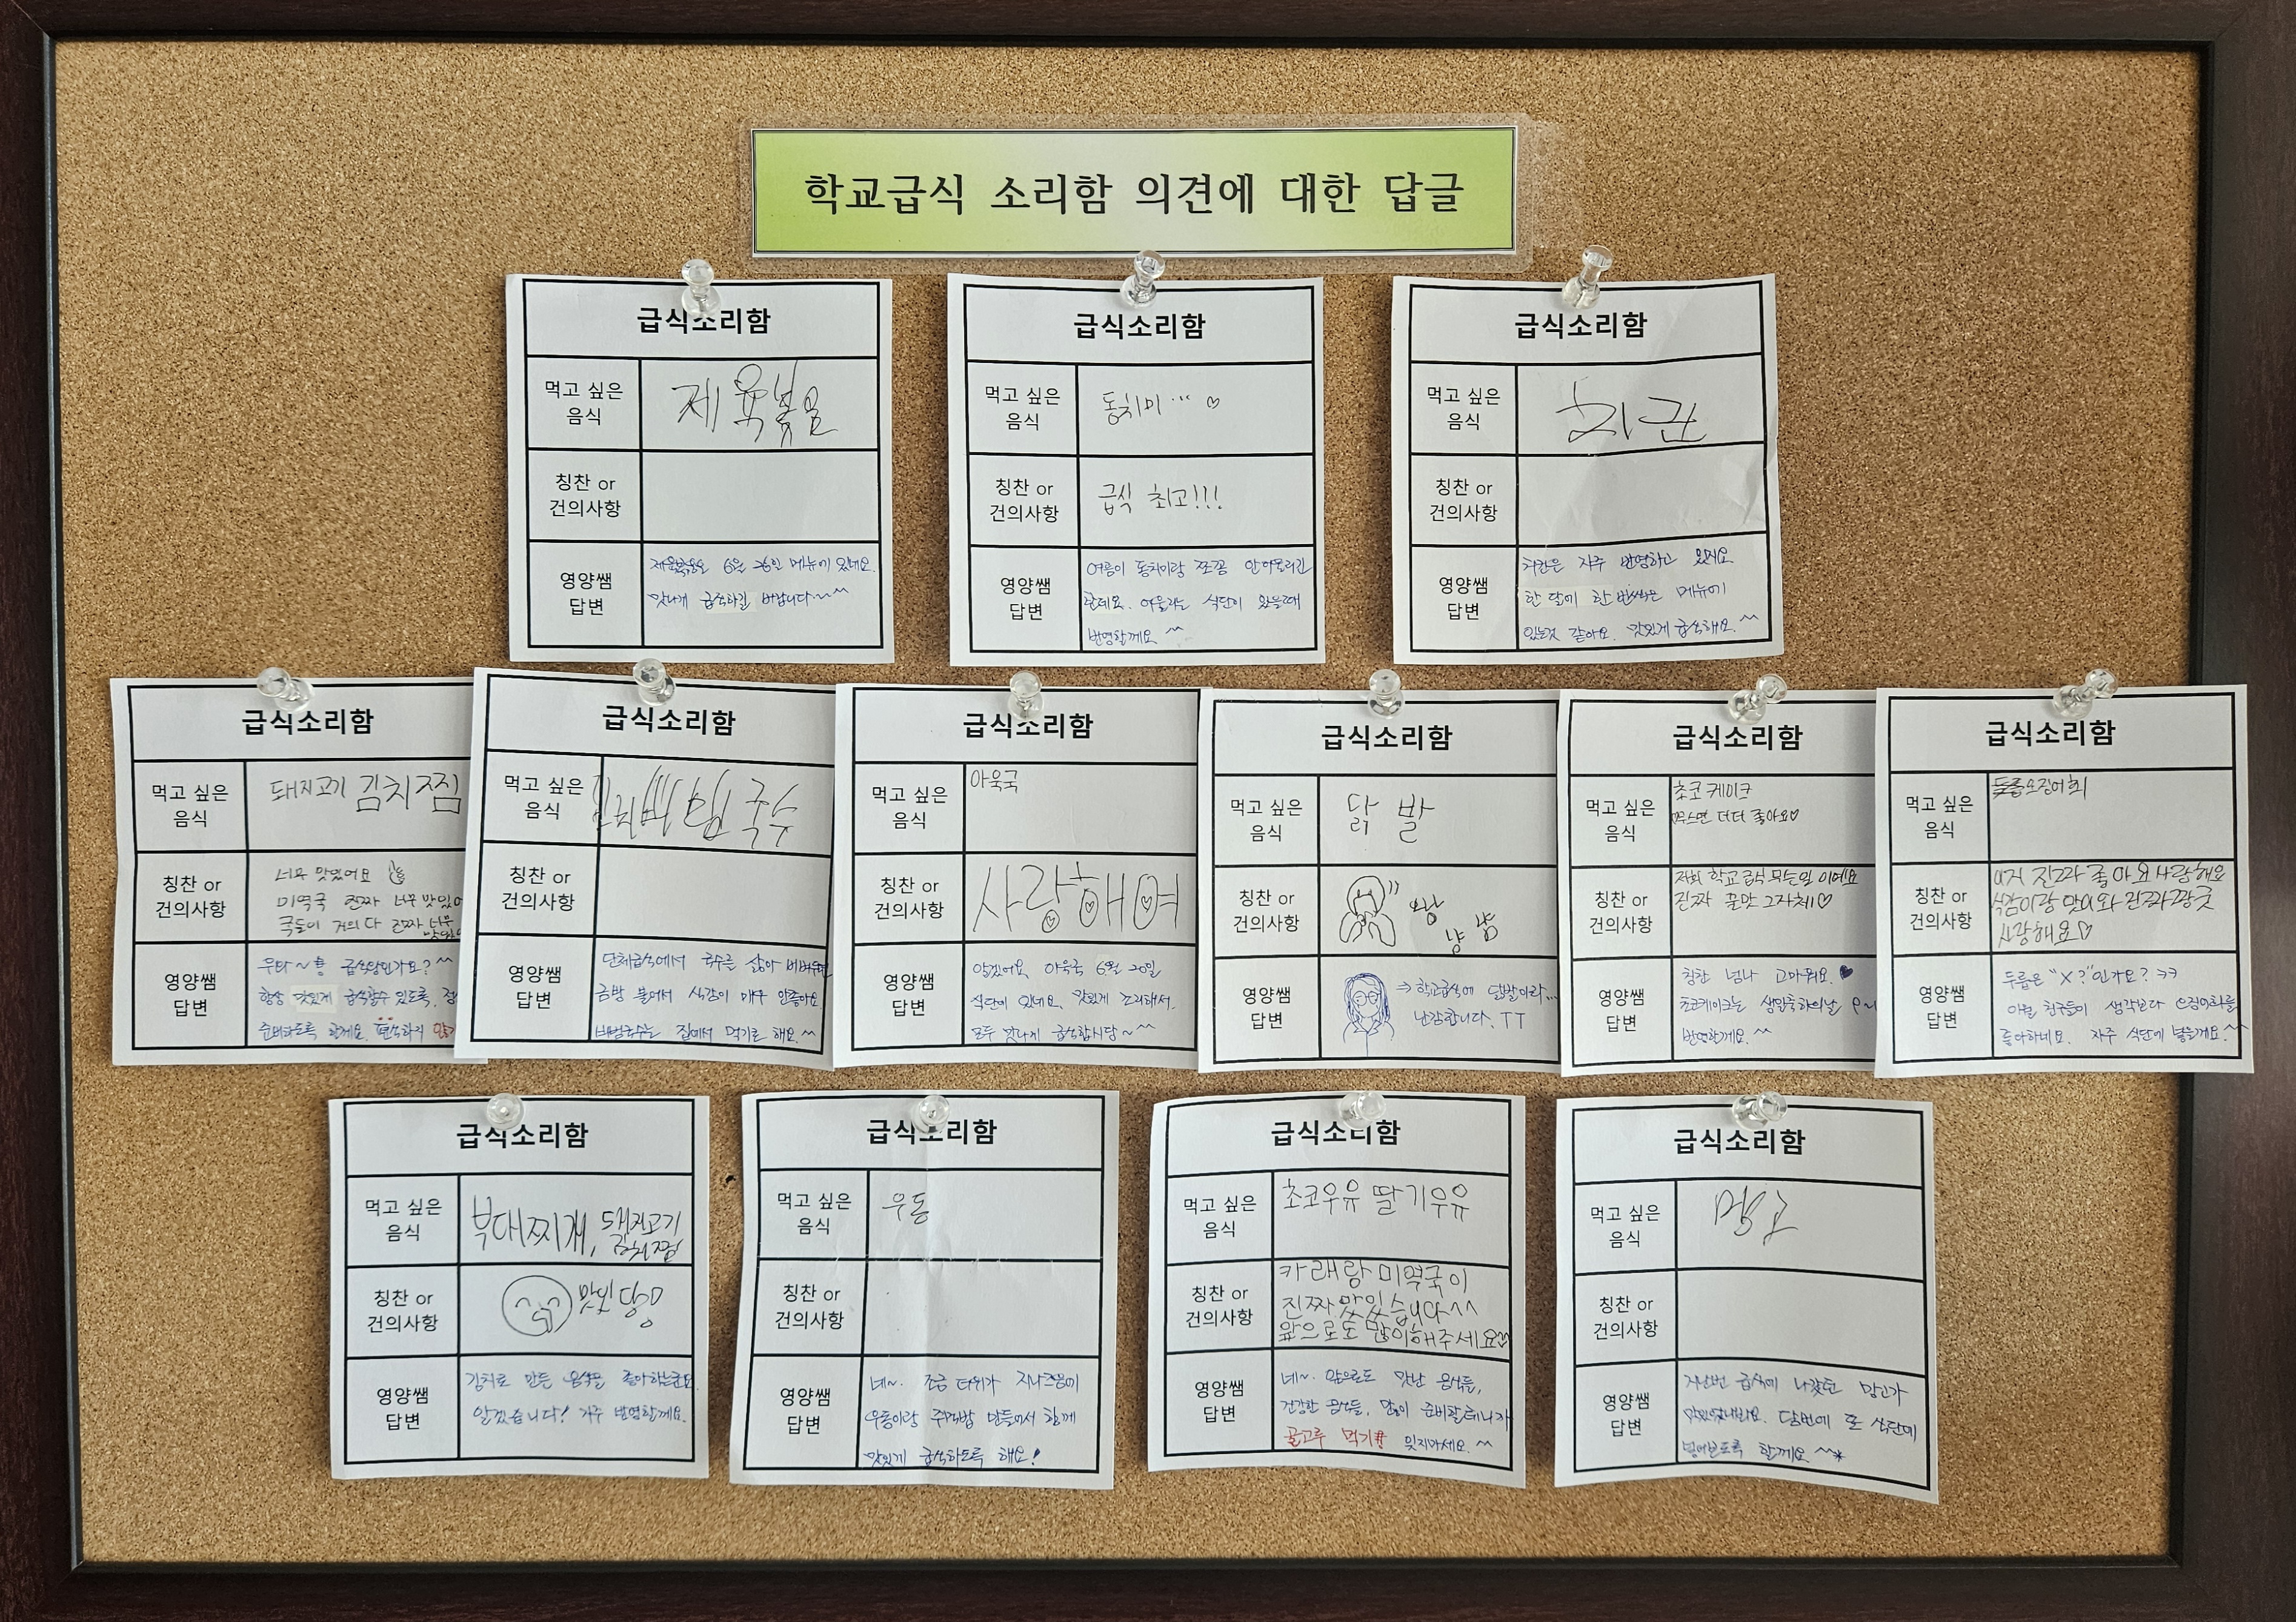 학교급식 소리함 의견에 대한 답글
급식소리함
먹고 싶은
음식
제육볶음
칭찬 or
건의사항
영양쌤
답변
제육볶음은 6월 26일 메뉴에 있네요.
맛나게 급식하길 바랍니다~~^^
급식소리함
먹고 싶은
음식
동치미… ♡
칭찬 or
건의사항
급식 최고!!!
영양쌤
답변
여름이 동치미랑 쪼끔 안어울리긴
한데요. 어울리는 식단이 있을때
반영할께요 ^^
급식소리함
먹고 싶은
음식
치킨
칭찬 or
건의사항
영양쌤
답변
치킨은 자주 반영하고 있지요
한 달에 한 번씩은 메뉴에
있는것 같아요. 맛있게 급식해요.^^
급식소리함
먹고 싶은
음식
돼지고기 김치찜
칭찬 or
건의사항
너무 맛있어요
미역국 진짜 너무 맛있어
국들이 거의 다 진짜 너무
영양쌤
답변
우와~ 급식왕인가요? ^^
항상 맛있게 급식할수 있도록,
준비하도록 할께요. 편식하지
급식소리함
먹고 싶은
음식
국수
칭찬 or
건의사항
영양쌤
답변
단체급식에서 국수를 삶아 비벼주면
금방 불어서 식감이 매우 안좋아요
비빔국수는 집에서 먹기로 해요.^^
급식소리함
먹고 싶은
음식
아욱국
칭찬 or
건의사항
사랑해여
영양쌤
답변
알겠어요. 아욱국 6월 20일
식단에 있네요. 맛있게 조리해서.
모두 맛나게 급식합시당~^^
급식소리함
먹고 싶은
음식
닭발
칭찬 or
건의사항
냠
영양쌤
답변
→ 학교급식에 닭발이라...
난감합니다. TT
급식소리함
먹고 싶은
음식
초코 케이크
무스면 더더 좋아요♡
칭찬 or
건의사항
저희 학교 급식 무슨일 이에요
진짜 꿀맛 그자체!♡
영양쌤
답변
칭찬 넘나 고마워요.♥
초코케이크는 생일축하의날
반영할께요.^^
급식소리함
먹고 싶은
음식
오징어회
칭찬 or
건의사항
진짜 좋아요 사랑해요
식감이랑 맛이 와 진짜 짱굿
사랑해요♡
영양쌤
답변
두릅은 "X?"인가요? ㅋㅋ
아월 친구들이 생각보다 오징어회를
좋아하네요. 자주 식단에 넣을께요.^^
급식소리함
먹고 싶은
음식
부대찌개, 돼지고기
김치찜
칭찬 or
건의사항
영양쌤
답변
김치로 만든 음식을 좋아하는군요
알겠습니다! 자주 반영할께요.
급식소리함
먹고 싶은
음식
우동
칭찬 or
건의사항
영양쌤
답변
네~. 조금 더위가 지나즈음에
우동이랑 주먹밥 만들어서 함께
맛있게 급식하도록 해요!
급식소리함
먹고 싶은
음식
초코우유 딸기우유
칭찬 or
건의사항
카레랑 미역국이
진짜 맛있습니다^^
앞으로도 많이해주세요♡
영양쌤
답변
네~ 앞으로도 맛난 음식들,
건강한 음식들, 많이 준비할테니까
골고루 먹기! 잊지마세요.^^
급식소리함
먹고 싶은
음식
망고
칭찬 or
건의사항
영양쌤
답변
지난번 급식에 나갔던 망고가
맛있었나봐요. 담번에 또 식단에
넣어보도록 할께요 ^^*